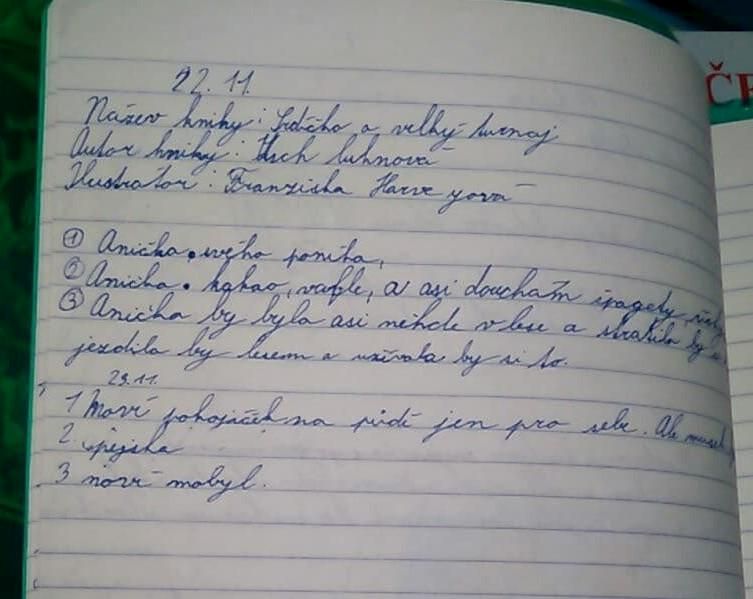 22. 11.
ČE
Název knihy: Srdíčko a velký turnaj
Autor knihy: Usch luhnová
Ilustrátor: Franziska Harve yová
① Anička. svého poníka,
② Anička. kakao, vafle, a asi doucham špagety,
③ Anička by byla asi někde v lese a ztratila by
jezdila by lesem a užívala by si to.
29.11.
1 Moví pokojíček na půdě jen pro sebe. Ale
2 spejska
3 noví mobyl.